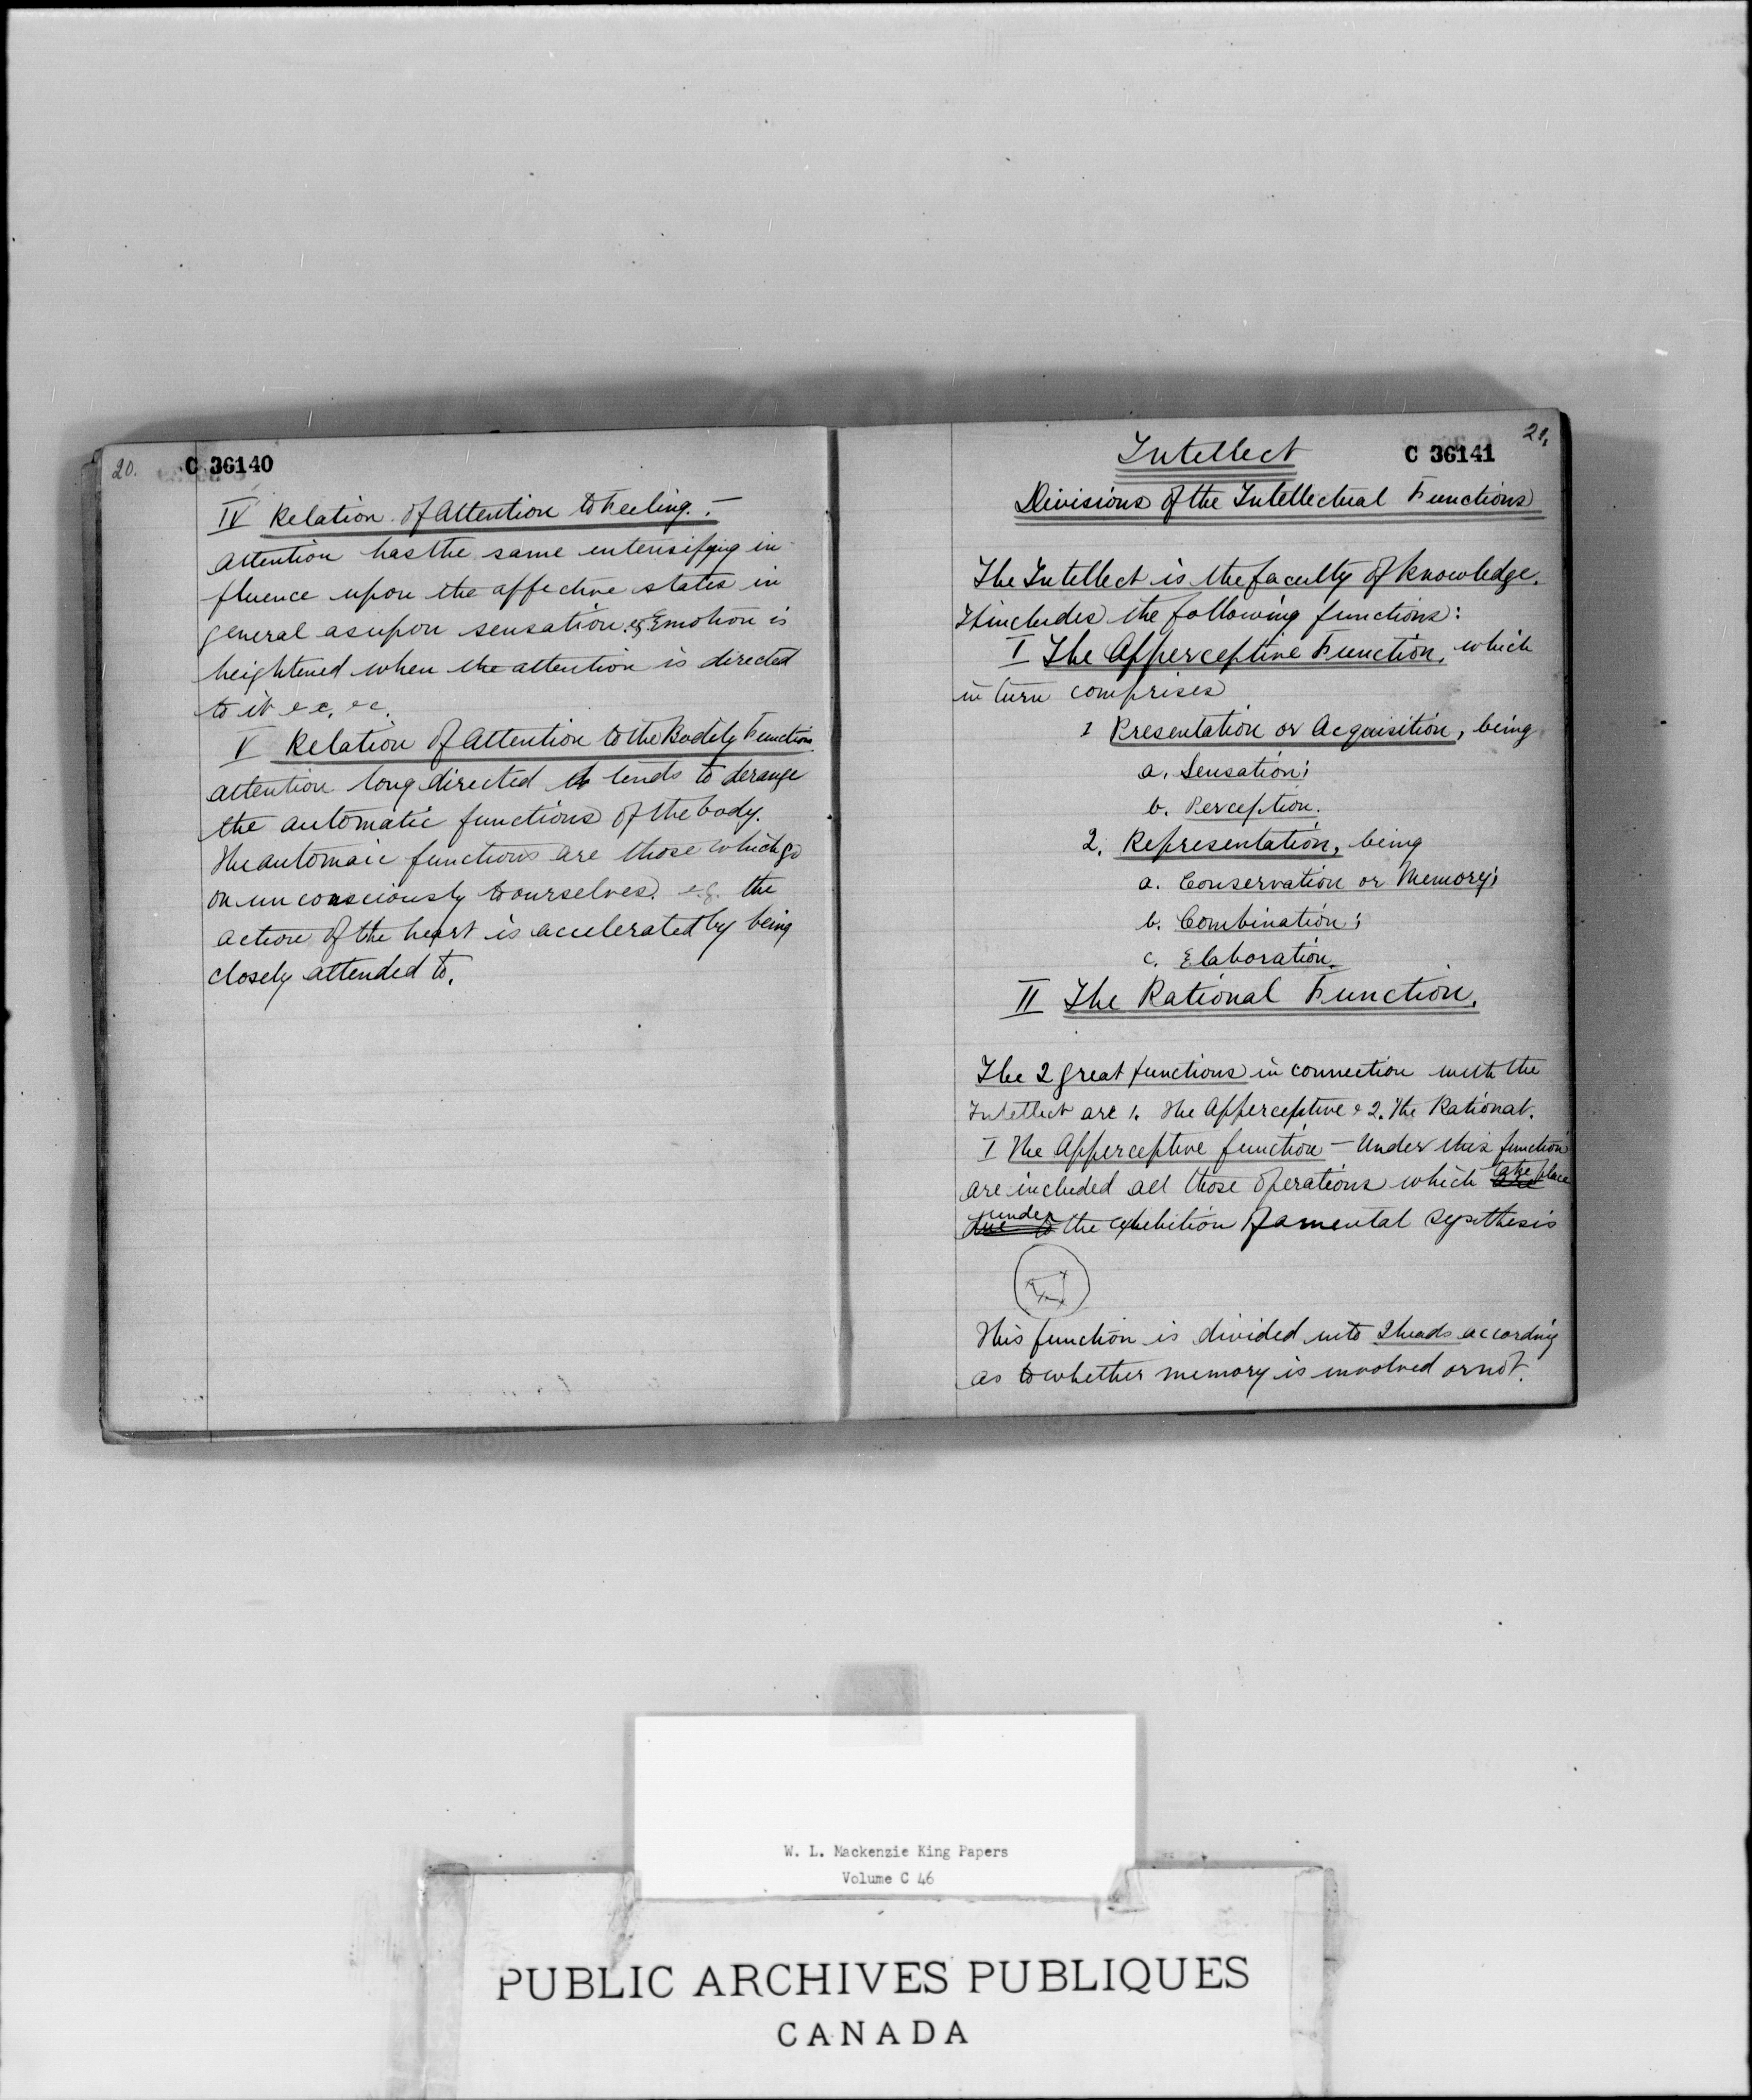 20.
C 36140
IV Relation of Attention to Feeling. –
Attention has the same intensifying in-
fluence upon the affective states in
general as upon sensation. eg Emotion is
heightened when the attention is directed
to it &c, &c.
V Relation of Attention to the Bodily Functions
Attention long directed tends to derange
the automatic functions of the body.
The automaic functions are those which go
on unconsciously to ourselves. e.g. the
action of the heart is accelerated by being
closely attended to.
21.
Intellect
C 36141
Divisions of the Intellectual Functions
The Intellect is the faculty of knowledge.
It includes the following functions:
I The Apperceptive Function, which
in turn comprises
1 Presentation or Acquisition, being
a. Sensation;
b. Perception.
2. Representation, being
a. Conservation or Memory;
b. Combination;
c. Elaboration.
II The Rational Function.
The 2 great functions in connection with the
Intellect are 1. The Apperceptive & 2. The Rational.
I The Apperceptive function – Under this function
are included all those operations which are take place
due to under the exhibition of a mental synthesis
This function is divided into 2 heads according
as to whether memory is involved or not.
W. L. Mackenzie King Papers
Volume C 46
PUBLIC ARCHIVES PUBLIQUES
CANADA